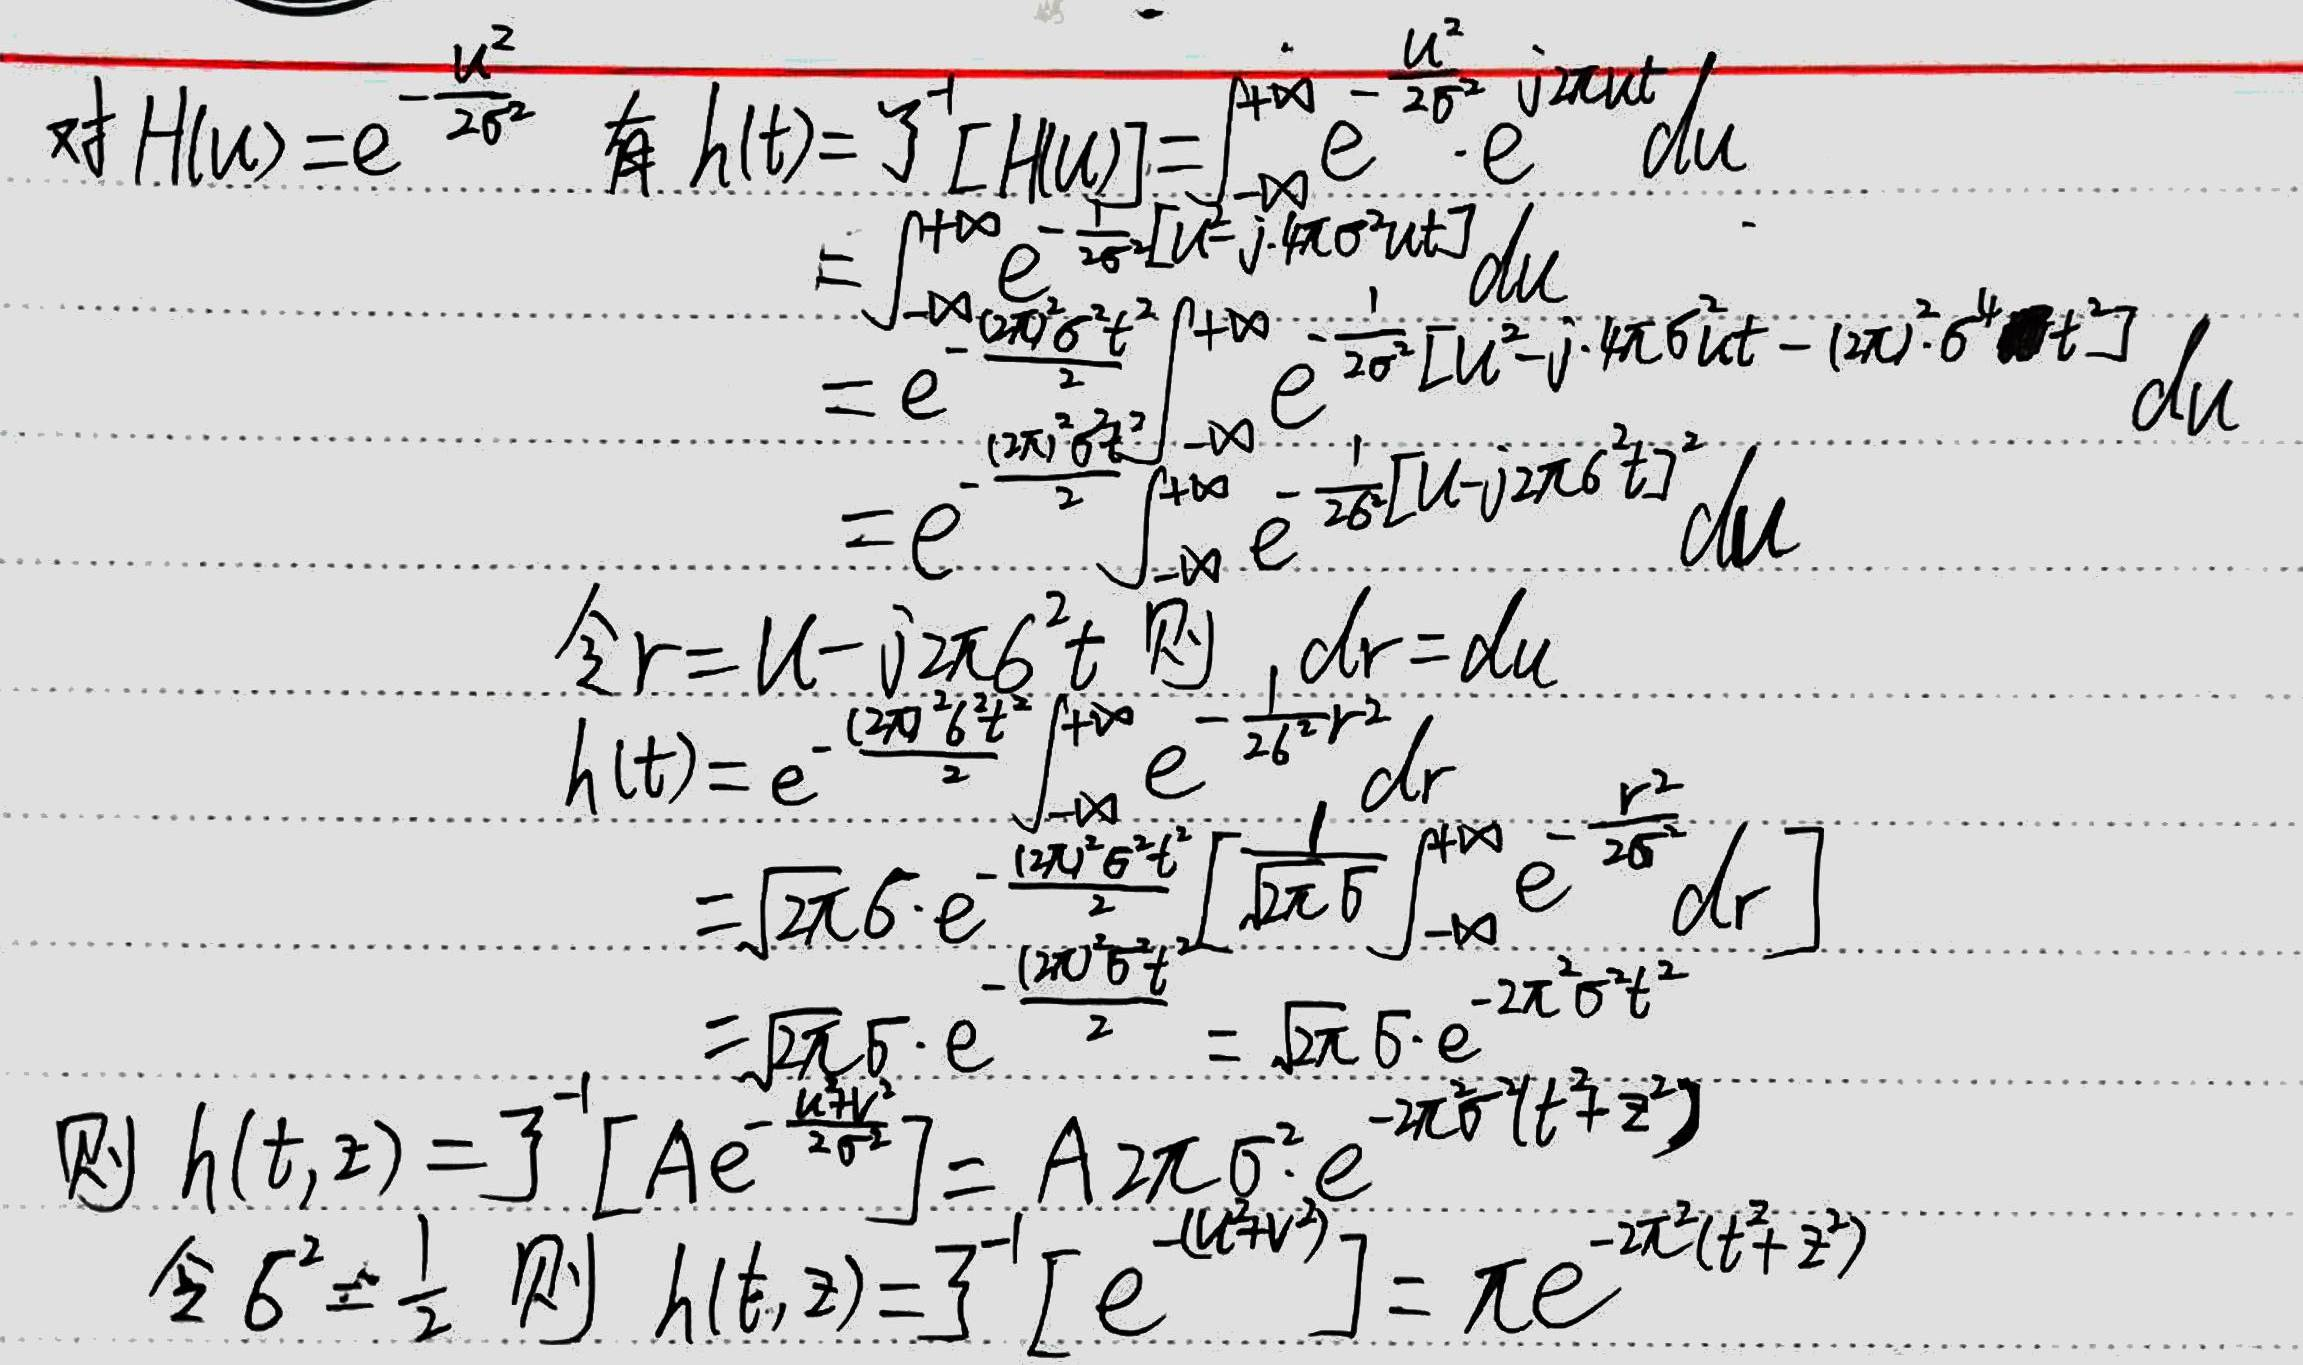 对 H(u) = e^{-\frac{u^2}{2σ^2}} 有 h(t) = ℱ^{-1}[H(u)] = ∫_{-∞}^{+∞} e^{-\frac{u^2}{2σ^2}} · e^{j2πut} du
= ∫_{-∞}^{+∞} e^{-\frac{1}{2σ^2}[u^2 - j·4πσ^2ut]} du
= e^{-\frac{(2π)^2σ^2t^2}{2}} ∫_{-∞}^{+∞} e^{-\frac{1}{2σ^2}[u^2 - j·4πσ^2ut - (2π)^2·σ^4t^2]} du
= e^{-\frac{(2π)^2σ^2t^2}{2}} ∫_{-∞}^{+∞} e^{-\frac{1}{2σ^2}[u - j2πσ^2t]^2} du
令 r = u - j2πσ^2t 则 dr = du
h(t) = e^{-\frac{(2π)^2σ^2t^2}{2}} ∫_{-∞}^{+∞} e^{-\frac{1}{2σ^2}r^2} dr
= √{2π}σ · e^{-\frac{(2π)^2σ^2t^2}{2}} [\frac{1}{√{2π}σ} ∫_{-∞}^{+∞} e^{-\frac{r^2}{2σ^2}} dr]
= √{2π}σ · e^{-\frac{(2π)^2σ^2t^2}{2}} = √{2π}σ · e^{-2π^2σ^2t^2}
则 h(t,z) = ℱ^{-1}[Ae^{-\frac{u^2+v^2}{2σ^2}}] = A2πσ^2 · e^{-2π^2σ^2(t^2+z^2)}
令 σ^2 = \frac{1}{2} 则 h(t,z) = ℱ^{-1}[e^{-(u^2+v^2)}] = πe^{-2π^2(t^2+z^2)}